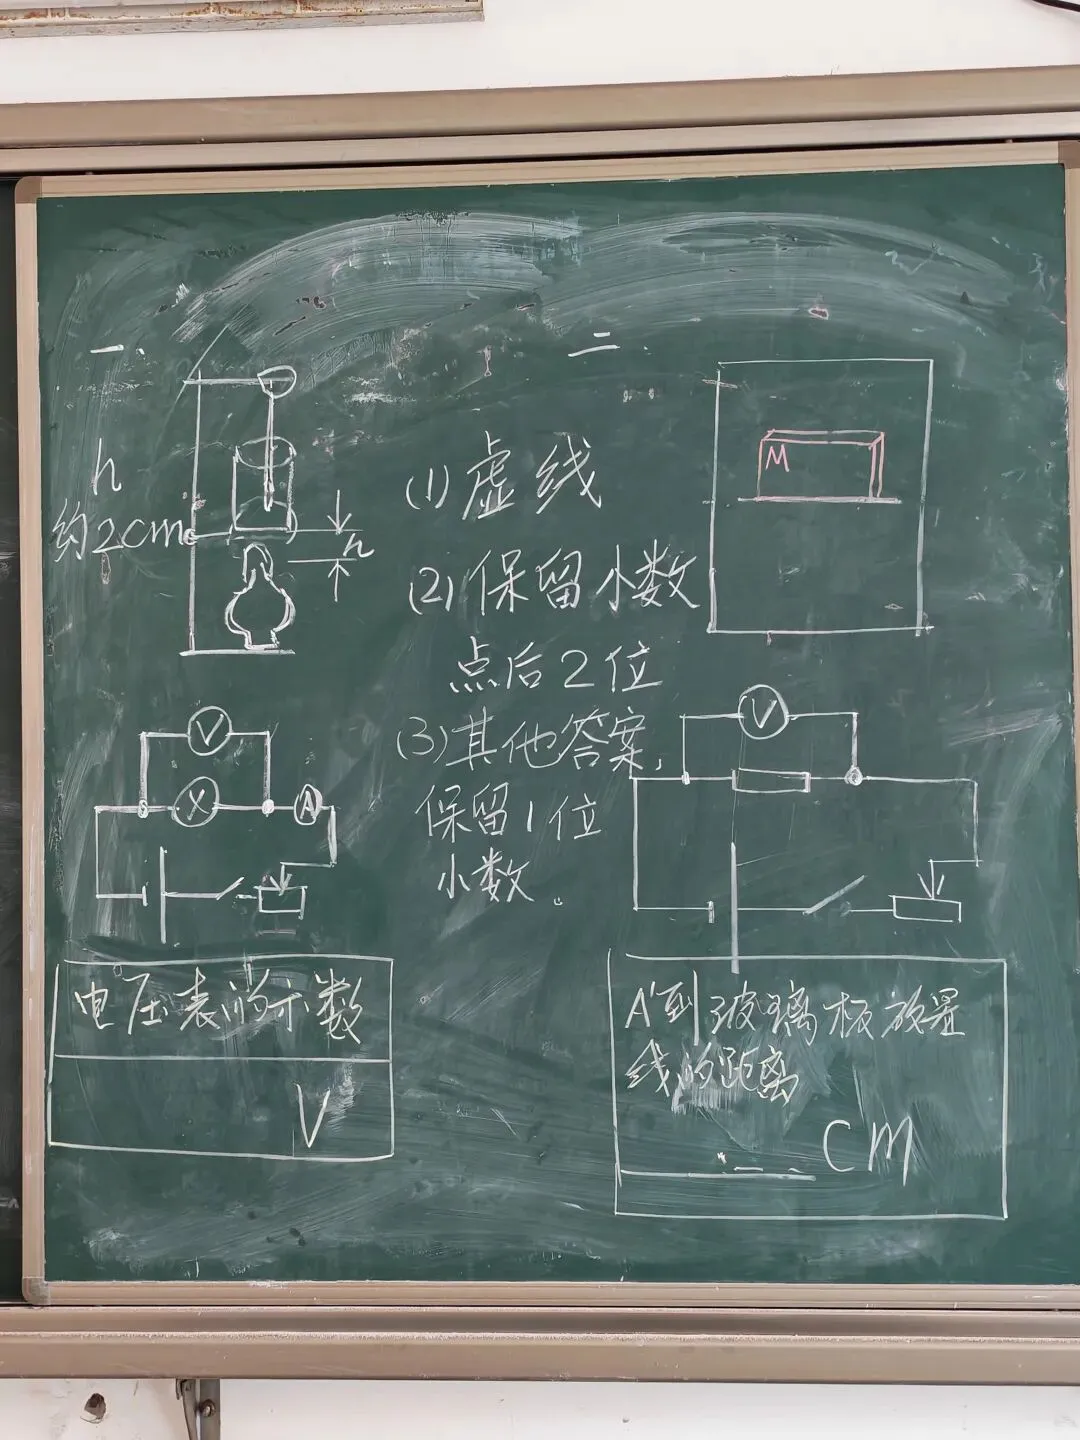 一、
h
约2cm
h
V
X
A
电压表的示数
V
(1)虚线
(2)保留小数
点后2位
(3)其他答案,
保留1位
小数。
二.
M
V
A'到玻璃板放置
线的距离
cm